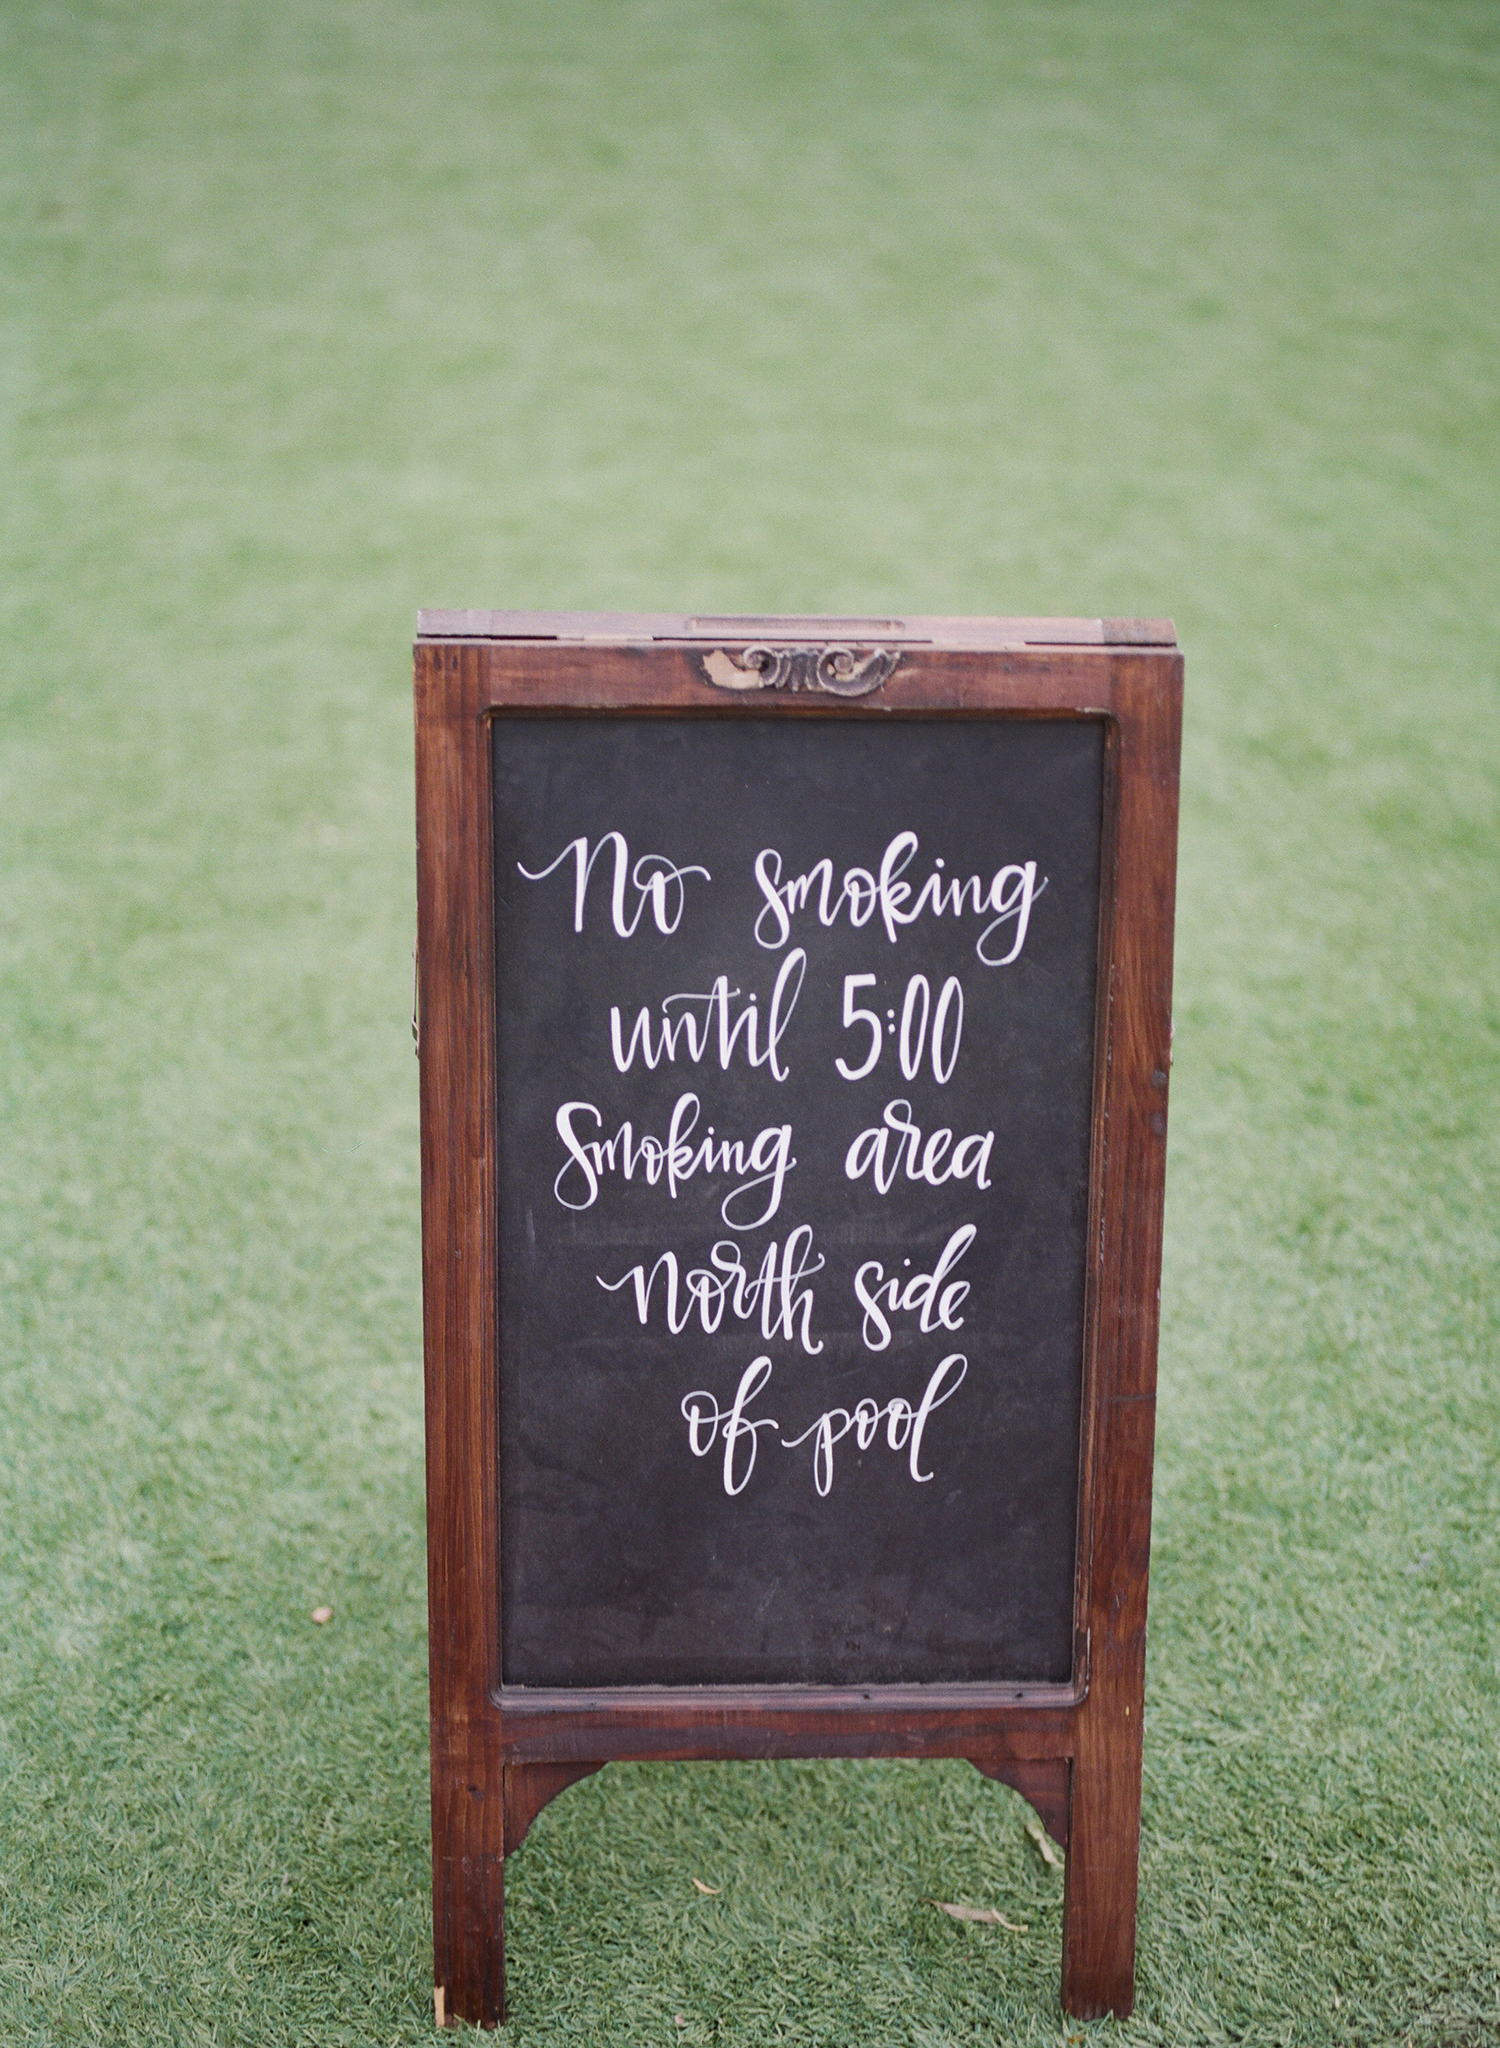 No smoking
until 5:00
Smoking area
north side
of pool